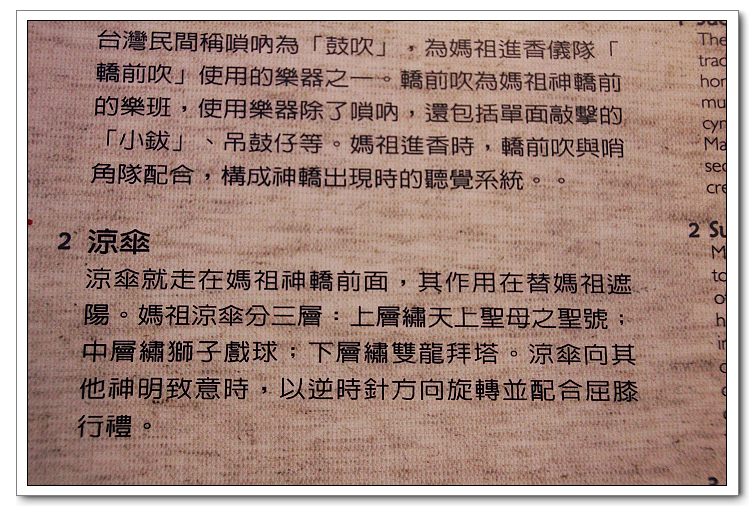 台灣民間稱嗩吶為「鼓吹」，為媽祖進香儀隊「
轎前吹」使用的樂器之一。轎前吹為媽祖神轎前
的樂班，使用樂器除了嗩吶，還包括單面敲擊的
「小鈸」、吊鼓仔等。媽祖進香時，轎前吹與哨
角隊配合，構成神轎出現時的聽覺系統。。
2 涼傘
涼傘就走在媽祖神轎前面，其作用在替媽祖遮
陽。媽祖涼傘分三層：上層繡天上聖母之聖號；
中層繡獅子戲球；下層繡雙龍拜塔。涼傘向其
他神明致意時，以逆時針方向旋轉並配合屈膝
行禮。
The
2